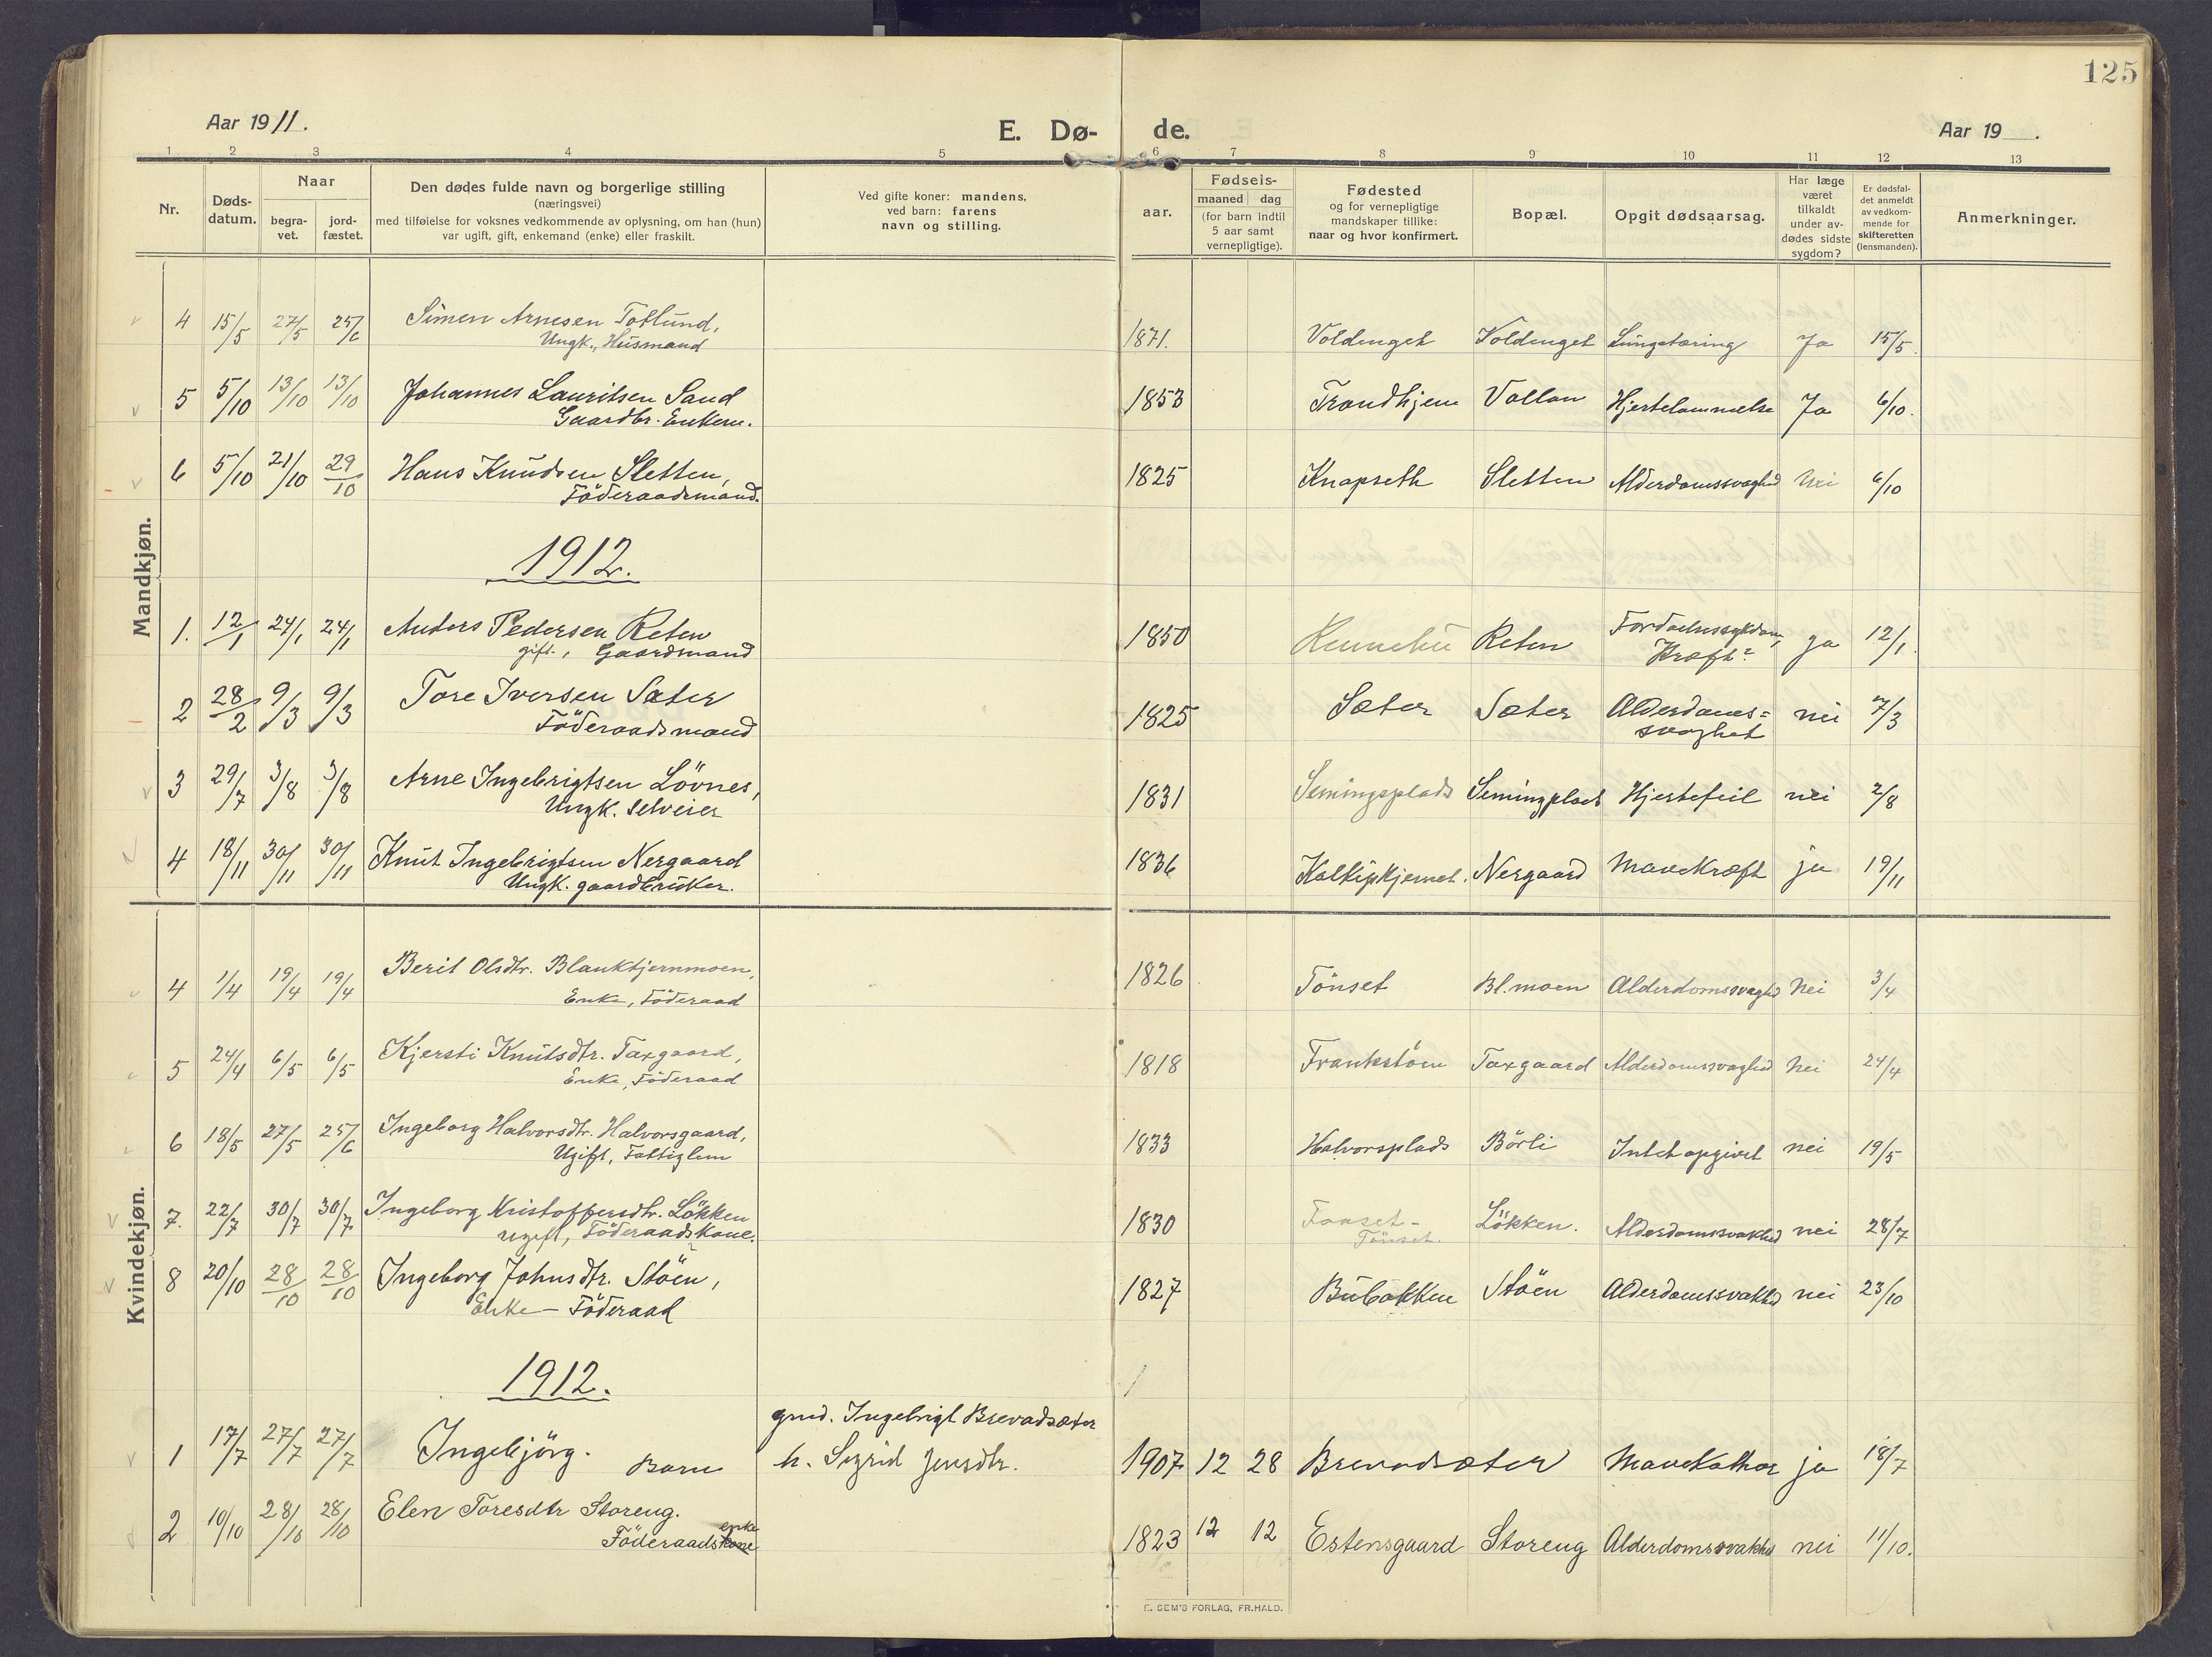 125
Aar 1911.
E. Dø-
de.
Aar 19 .
1 2 3 4 5 6 7 8 9 10 11 12 13
Nr.
Døds-
datum.
Naar
begra-
vet.
jord-
fæstet.
Den dødes fulde navn og borgerlige stilling
(næringsvei)
med tilføielse for voksnes vedkommende av oplysning, om han (hun)
var ugift, gift, enkemand (enke) eller fraskilt.
Ved gifte koner: mandens,
ved barn: farens
navn og stilling.
aar.
Fødsels-
maaned dag
(for barn indtil
5 aar samt
vernepligtige).
Fødested
og for vernepligtige
mandskaper tillike:
naar og hvor konfirmert.
Bopæl.
Opgit dødsaarsag.
Har læge
været
tilkaldt
under av-
dødes sidste
sygdom?
Er dødsfal-
det anmeldt
av vedkom-
mende for
skifteretten
(lensmanden).
Anmerkninger.
Mandkjøn.
4 15/5 27/5 25/6 Simen Arnesen Totlund, 1871. Voldenget Voldenget Lungetæring Ja 15/5.
Ungk., Husmand
5 5/10 13/10 13/10 Johannes Lauritsen Sand 1853 Trondhjem Vollan Hjertelammelse Ja 6/10.
Gaardbr. Enkem.
6 5/10 21/10 29/10 Hans Knudsen Sletten, 1825 Knapseth Sletten Alderdomssvaghed Nei 6/10
Föderaadsmand.
1912.
1. 12/1 24/1 24/1 Anders Pedersen Reten 1850 Reten Fordøielsessykdom, ja 12/1
gift., Gaardmand Kræft?
2 28/2 9/3 9/3 Tore Iversen Sæter 1825 Sæter Sæter Alderdoms= nei 7/3
Föderaadsmand svaghet
3 29/7 3/8 3/8 Arne Ingebrigtsen Lövnes, 1831 Semingsplads Semingplads Hjertefeil nei 2/8
Ungk. selveier
4 18/11 30/11 30/11 Knut Ingebrigtsen Nergaard 1836 Nergaard Mavekræft ja 19/11
Ungk. gaardbruker.
Kvindekjøn.
4 1/4 19/4 19/4 Berit Olsdtr. Blanktjernmoen, 1826 Tönset Bl.moen Alderdomssvaghd Nei 3/4
Enke, Föderaad
5 24/4 6/5 6/5 Kjersti Knutsdtr. Taxgaard, 1818 Frankstöen Taxgaard Alderdomssvaghed Nei 24/4
Enke, Föderaad
6 18/5 27/5 25/6 Ingeborg Halvorsdtr. Halvorsgaard, 1833 Halvorsplads Börli Intet opgivet nei 19/5
Ugift, Fattiglem
7. 22/7 30/7 30/7 Ingeborg Kristoffersdtr. Løkken 1830 Fonset- Løkken. Alderdomssvakhed nei 28/7
ugift, Föderaadskone. Tönset.
8 20/10 28/10 28/10 Ingeborg Johnsdtr. Stöen, 1827 Bubakken Stöen Alderdomssvakhd nei 23/10
Enke – Föderaad
1912.
gmd. Ingebrigt Brevadsæter
1 17/7 27/7 27/7 Ingebjörg. Barn h. Sigrid Jensdtr. 1907 12 28 Brevadsæter Mavekathar ja 18/7
2 10/10 28/10 28/10 Elen Toresdtr Storeng. 1823 12 12 Estensgaard Storeng Alderdomssvakhd nei 11/10.
enke
Föderaadskone
E. SEM'S FORLAG, FR.HALD.